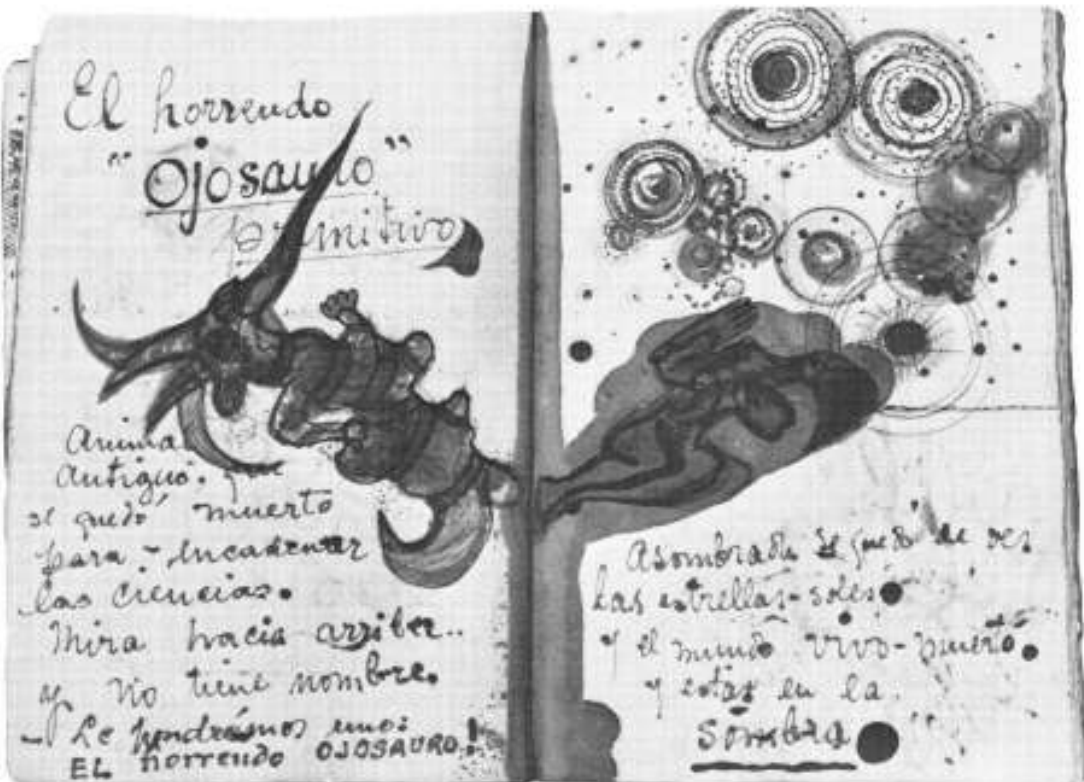 El horrendo
"Ojosauro"
primitivo
Animal
antiguo. que
se quedó muerto
para - encadenar
las ciencias.
Mira hacia arriba..
y no tiene nombre.
- Le pondrémos uno:
EL horrendo OJOSAURO!
Asombrada se quedó de ver
las estrellas-soles
y el mundo vivo-muerto
y estar en la
sombra